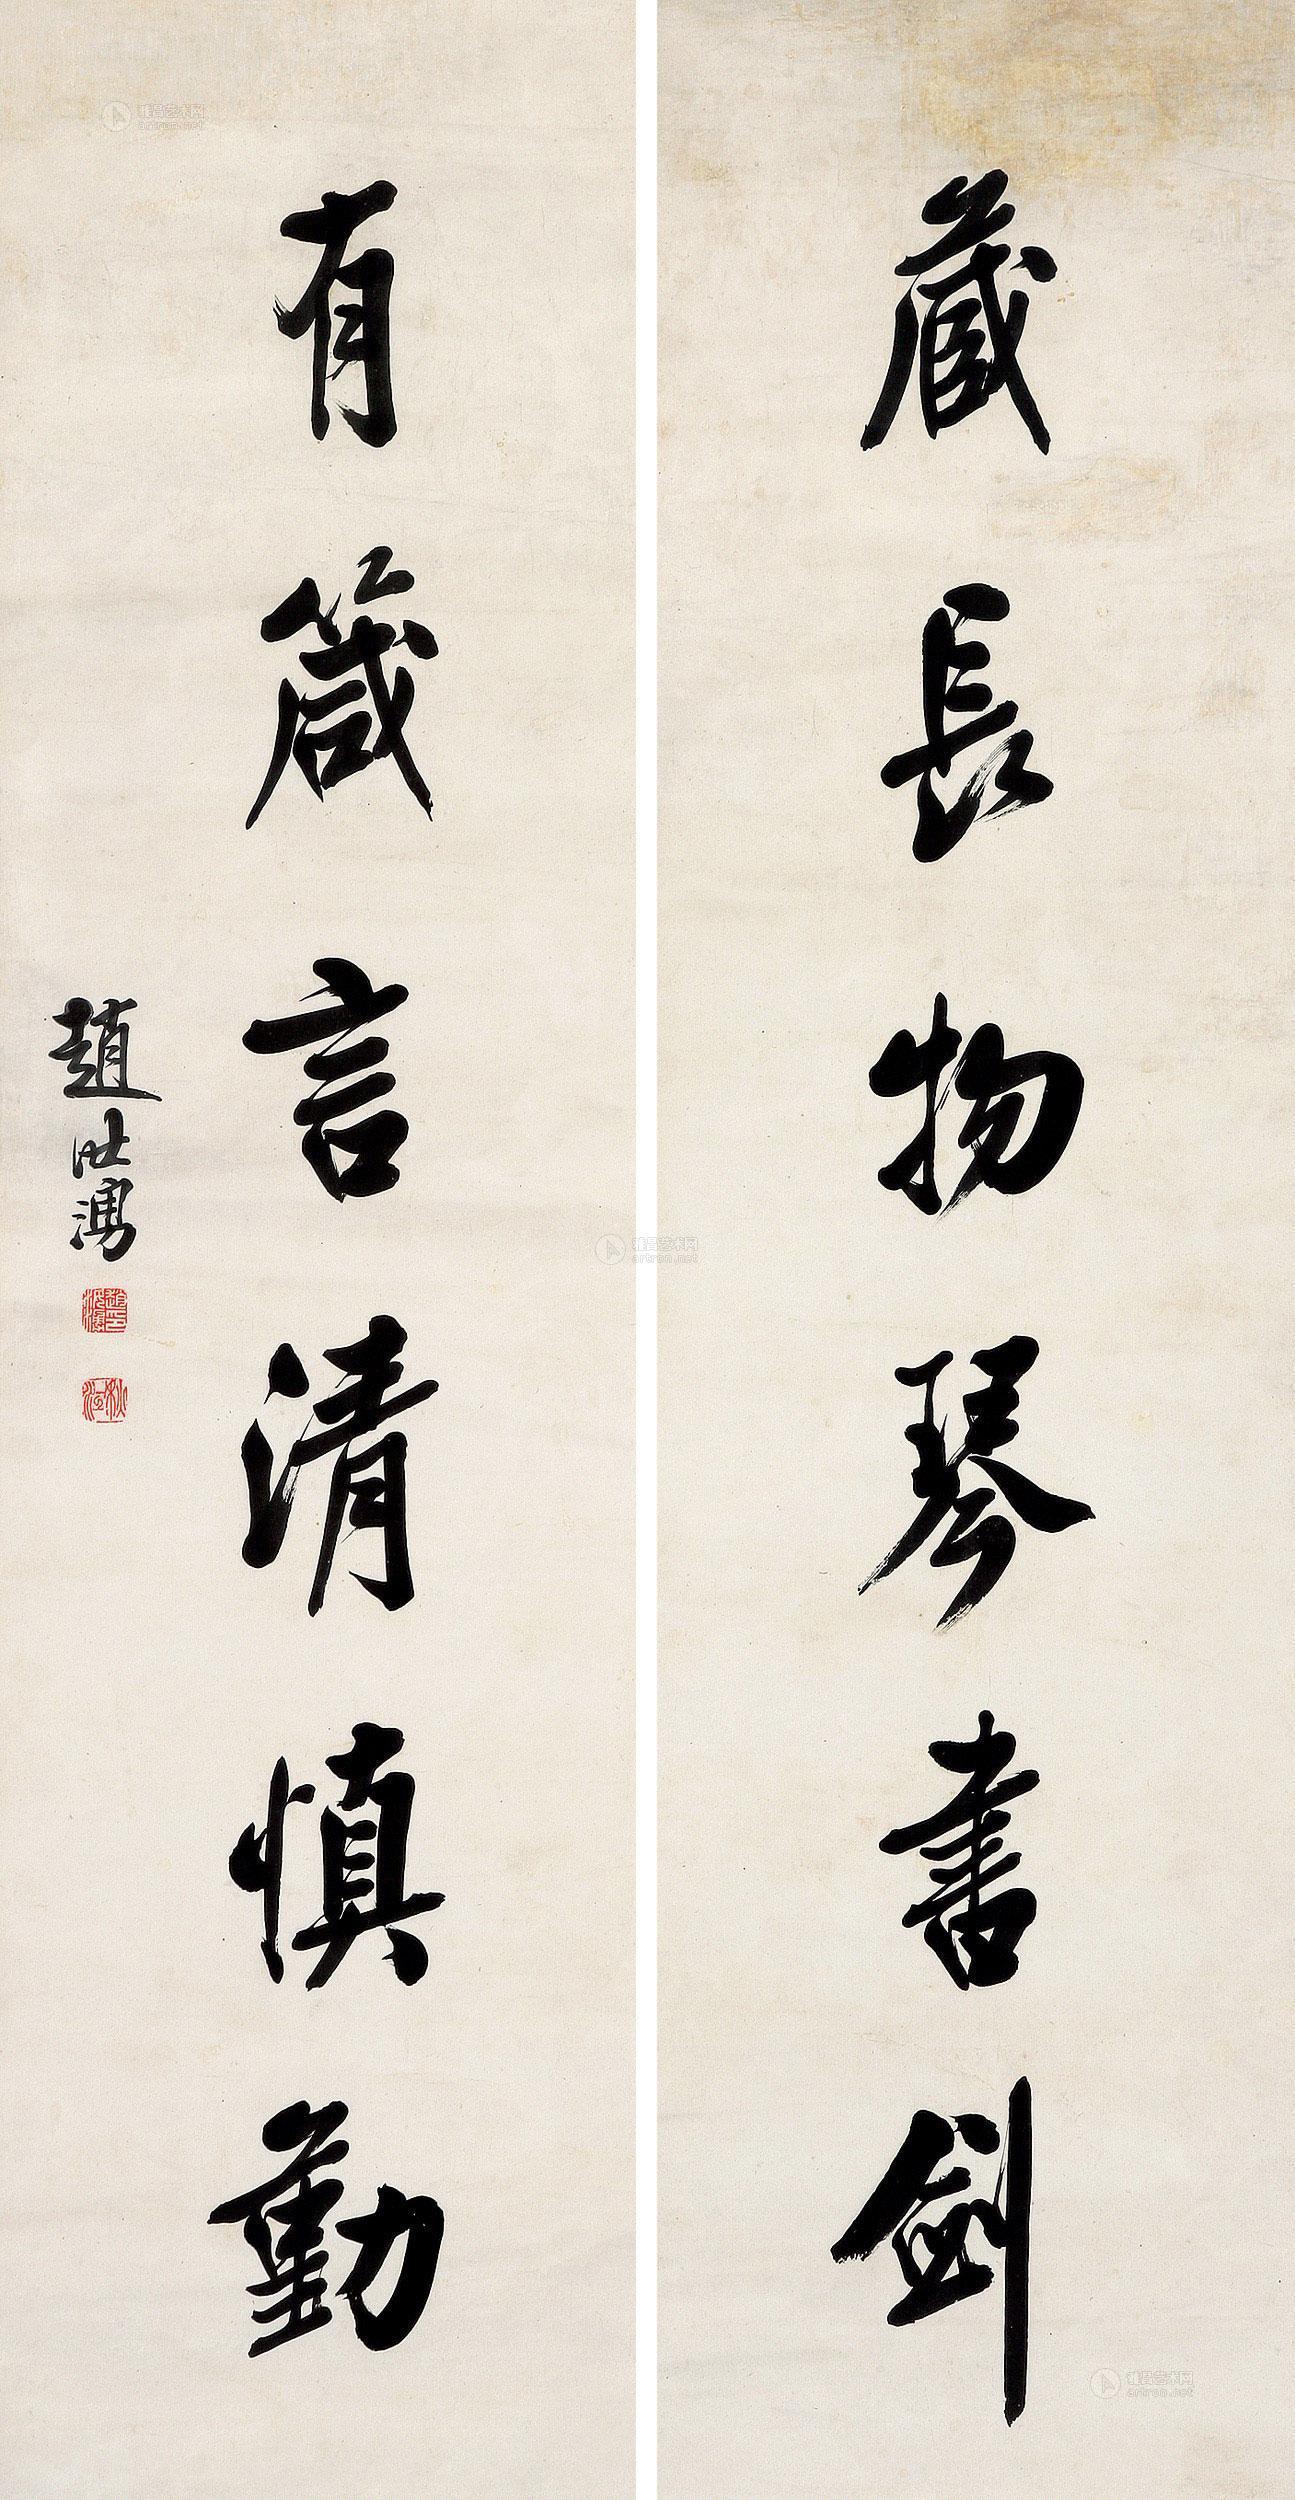 藏長物琴書劍
有箴言清慎勤
趙世濬
雅昌艺术网
artron.net
雅昌艺术网
artron.net
雅昌艺术网
artron.net